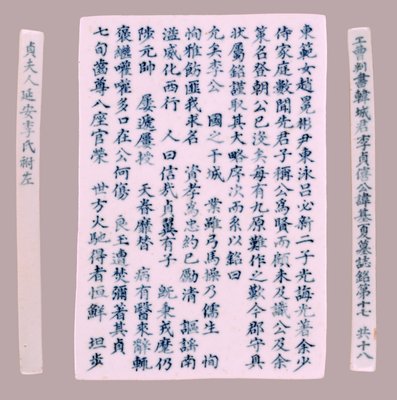 工曹判書韓城君李貞僖公諱基夏墓誌銘第十七 共十八
東範女趙晃彬尹東泳呂必新二子光誨光 余少
侍家庭數聞先君子稱公爲賢而願未及識公及余
策名登朝公已沒矣每有九原難作之歎今郡守具
狀屬銘謹取其大略序次而系以銘曰
允矣李公 國之干城 業雖弓馬操乃儒生 恂
恂雅飭匪我求名 資孝爲忠約己勵清 謳謠南
溢威化西行 人曰信哉貞翼有子 秉戎麾仍
陟元帥 屢遞屢授 天眷靡替 病有醫來辭輒
褒繼嚾嚾多口在公何傷 良玉遭焚彌著其貞
七旬齒尊八座官榮 世方火馳得者恒鮮 坦步
貞夫人延安李氏祔左